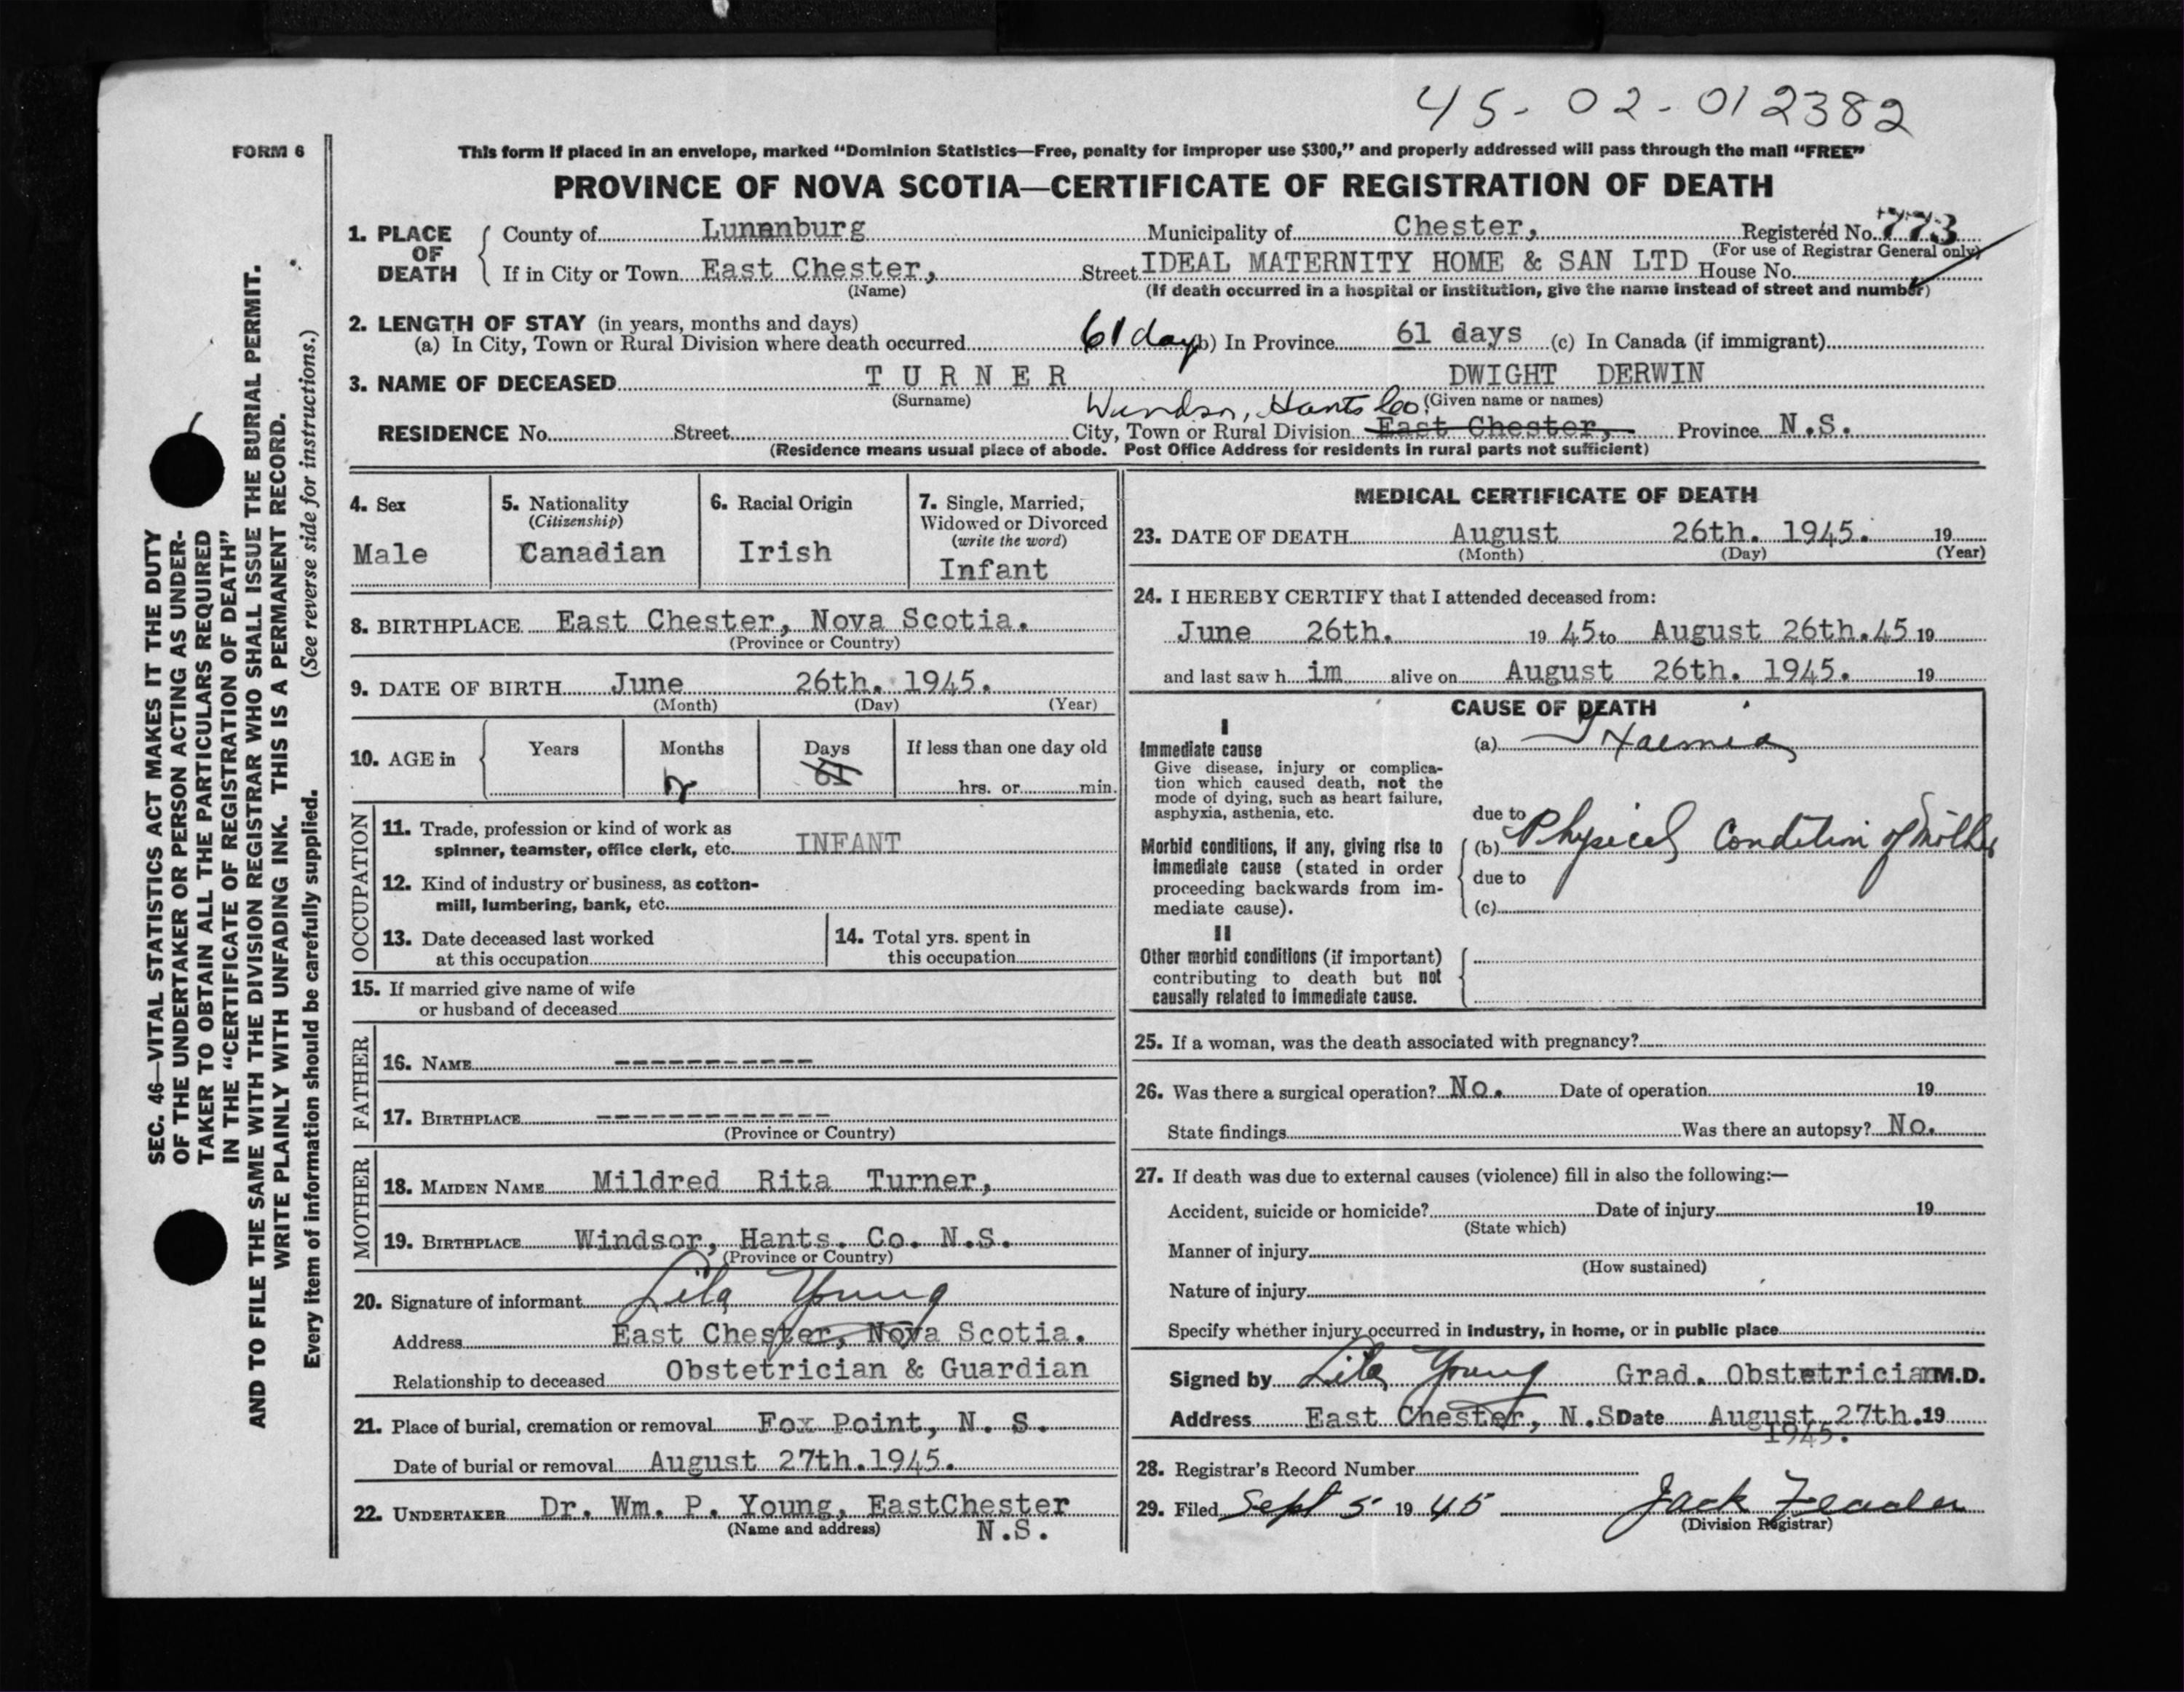 45-02-012382
FORM 6
This form if placed in an envelope, marked "Dominion Statistics—Free, penalty for improper use $300," and properly addressed will pass through the mail "FREE"
PROVINCE OF NOVA SCOTIA—CERTIFICATE OF REGISTRATION OF DEATH
1. PLACE OF DEATH
County of Lunenburg Municipality of Chester, Registered No. 773
(For use of Registrar General only)
If in City or Town East Chester, Street IDEAL MATERNITY HOME & SAN LTD House No.
(Name) (If death occurred in a hospital or institution, give the name instead of street and number)
2. LENGTH OF STAY (in years, months and days)
(a) In City, Town or Rural Division where death occurred 61 days (b) In Province 61 days (c) In Canada (if immigrant)
3. NAME OF DECEASED TURNER DWIGHT DERWIN
(Surname) (Given name or names)
Windsor, Hants Co.
RESIDENCE No. Street City, Town or Rural Division East Chester, Province N.S.
(Residence means usual place of abode. Post Office Address for residents in rural parts not sufficient)
4. Sex
Male
5. Nationality
(Citizenship)
Canadian
6. Racial Origin
Irish
7. Single, Married, Widowed or Divorced
(write the word)
Infant
8. BIRTHPLACE East Chester, Nova Scotia.
(Province or Country)
9. DATE OF BIRTH June 26th. 1945.
(Month) (Day) (Year)
10. AGE in Years Months Days If less than one day old
2 61 hrs. or min.
OCCUPATION
11. Trade, profession or kind of work as
spinner, teamster, office clerk, etc. INFANT
12. Kind of industry or business, as cotton-
mill, lumbering, bank, etc.
13. Date deceased last worked
at this occupation
14. Total yrs. spent in
this occupation
15. If married give name of wife
or husband of deceased
FATHER
16. NAME -----------
17. BIRTHPLACE -------------
(Province or Country)
MOTHER
18. MAIDEN NAME Mildred Rita Turner,
19. BIRTHPLACE Windsor, Hants. Co. N.S.
(Province or Country)
20. Signature of informant Lila Young
Address East Chester, Nova Scotia.
Relationship to deceased Obstetrician & Guardian
21. Place of burial, cremation or removal Fox Point, N. S.
Date of burial or removal August 27th.1945.
22. UNDERTAKER Dr. Wm. P. Young, EastChester
(Name and address) N.S.
MEDICAL CERTIFICATE OF DEATH
23. DATE OF DEATH August 26th. 1945. 19
(Month) (Day) (Year)
24. I HEREBY CERTIFY that I attended deceased from:
June 26th. 19 45 to August 26th.45 19
and last saw h im alive on August 26th. 1945. 19
CAUSE OF DEATH
I
Immediate cause
Give disease, injury or complica-
tion which caused death, not the
mode of dying, such as heart failure,
asphyxia, asthenia, etc.
(a)
due to
Morbid conditions, if any, giving rise to
immediate cause (stated in order
proceeding backwards from im-
mediate cause).
(b) Physical Condition of Mother
due to
(c)
II
Other morbid conditions (if important)
contributing to death but not
causally related to immediate cause.
25. If a woman, was the death associated with pregnancy?
26. Was there a surgical operation? No. Date of operation 19
State findings Was there an autopsy? No.
27. If death was due to external causes (violence) fill in also the following:—
Accident, suicide or homicide? Date of injury 19
(State which)
Manner of injury
(How sustained)
Nature of injury
Specify whether injury occurred in industry, in home, or in public place
Signed by Lila Young Grad. Obstetrician M.D.
Address East Chester, N.S Date August 27th. 19
1945.
28. Registrar's Record Number
29. Filed Sept 5 19 45 Jack
(Division Registrar)
SEC. 46—VITAL STATISTICS ACT MAKES IT THE DUTY
OF THE UNDERTAKER OR PERSON ACTING AS UNDER-
TAKER TO OBTAIN ALL THE PARTICULARS REQUIRED
IN THE "CERTIFICATE OF REGISTRATION OF DEATH"
AND TO FILE THE SAME WITH THE DIVISION REGISTRAR WHO SHALL ISSUE THE BURIAL PERMIT.
WRITE PLAINLY WITH UNFADING INK. THIS IS A PERMANENT RECORD.
Every item of information should be carefully supplied. (See reverse side for instructions.)